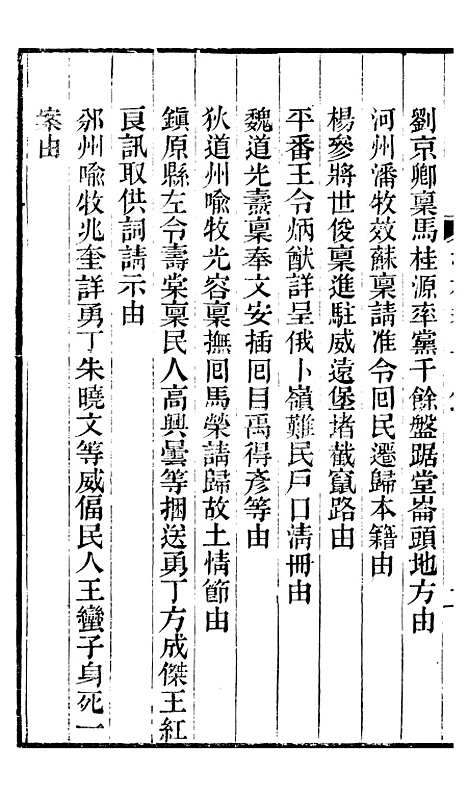 劉京卿稟馬桂源率黨千餘盤踞堂崙頭地方由
河州潘牧效蘇稟請准令囘民遷歸本籍由
楊參將世俊稟進駐威遠堡堵截竄路由
平番王令炳猷詳呈俄卜嶺難民戸口清冊由
魏道光燾稟奉文安插囘目禹得彥等由
狄道州喩牧光容稟撫囘馬榮請歸故土情節由
鎭原縣左令壽棠稟民人高興曇等捆送勇丁方成傑王紅
良訊取供詞請示由
邠州喩牧兆奎詳勇丁朱曉文等威偪民人王蠻子身死一
案由